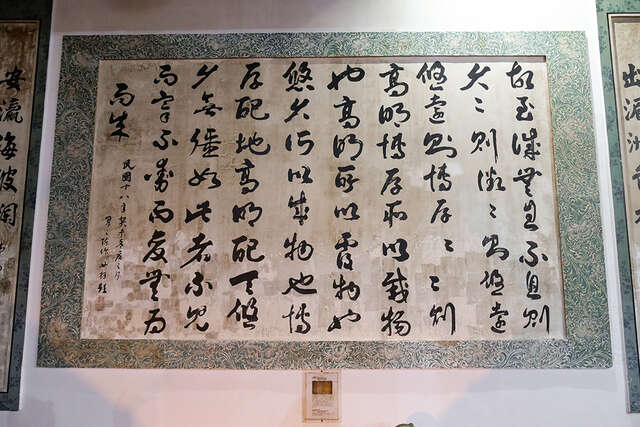 故至誠無息不息則
久〻則徵〻則悠遠
悠遠則博厚〻〻則
高明博厚所以載物
也高明所以覆物也
悠久所以成物也博
厚配地高明配天悠
久無疆如此者不見
而章不動而變無為
而成
民國十八年
瀛海波闊